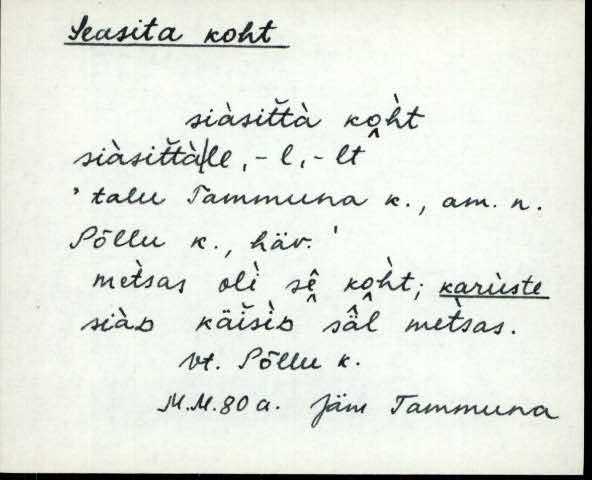 Seasita koht
siàsit̆tà ko̭h̀t
siàsit̆tà|le, -l, -lt
' talu Tammuna k., am. n.
Põllu k., häv. '
met̀sas olì sḙ̂ ko̭h̀t; karùste
siàᴅ käìsìᴅ sä̭̂l met̀sas.
vt. Põllu k.
M.M. 80 a. Jäm Tammuna